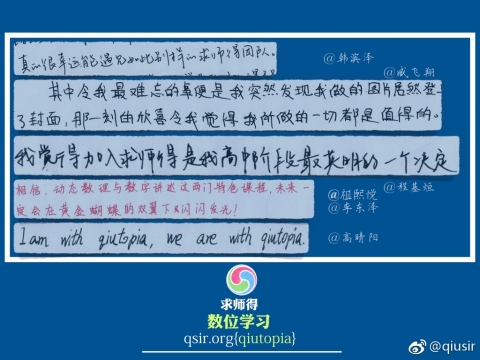 真的很幸运能遇见如此别样的求师得团队。
@韩滨泽
@戚飞翔
其中令我最难忘的莫便是我突然发现我做的图片居然登
了封面，那一刻的欣喜令我觉得我所做的一切都是值得的。
我觉得加入求师得是我高中阶段最英明的一个决定
@程基烜
相信，动态数理与数字讲述这两门特色课程，未来一
定会在黄金蝴蝶的双翼下闪闪发光！
@祖熙悦
@李东泽
I am with qiutopia, we are with qiutopia.
@高晴阳
求师得
数位学习
qsir.org{qiutopia}
@qiusir